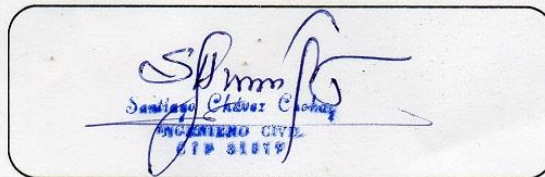 Santiago Chávez Cachay
INGENIERO CIVIL
CIP